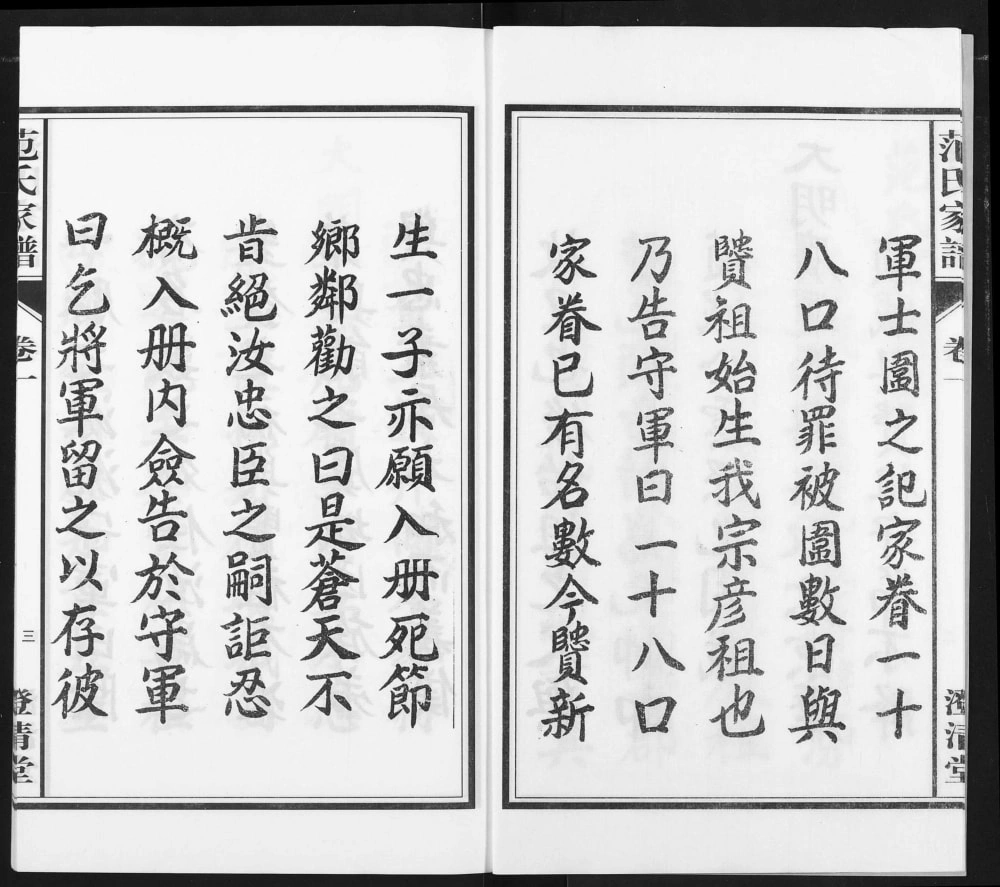 范氏家譜 卷一 澄清堂
軍士圍之記家眷一十
八口待罪被圍數日與
贒祖始生我宗彦祖也
乃告守軍曰一十八口
家眷已有名數今贒新
生一子亦願入册死節
鄉鄰勸之曰是蒼天不
肯絕汝忠臣之嗣詎忍
概入册内僉告於守軍
曰乞將軍留之以存彼
范氏家譜 卷一 三 澄清堂